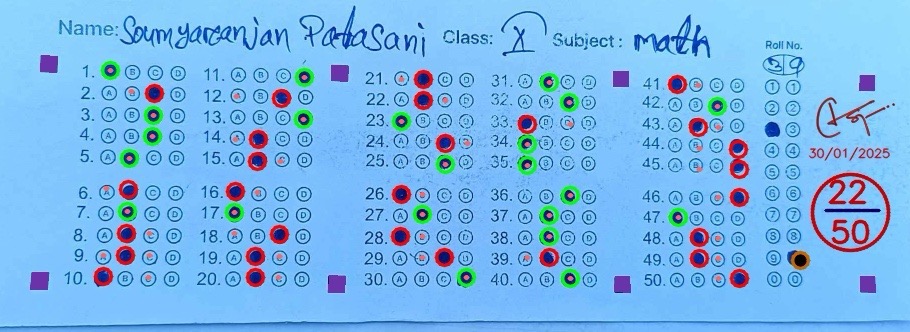 Name: Soumyaranjan Patasani Class: X Subject: math
Roll No.
39
1. B C D
2. A B D
3. A B D
4. A B D
5. A C D
6. A C D
7. A C D
8. A C D
9. A C D
10. B C D
11. A B C
12. A B D
13. A B C
14. A C D
15. A C D
16. B C D
17. B C D
18. A B D
19. A C D
20. A C D
21. A C D
22. A C D
23. B C D
24. A B D
25. A B D
26. B C D
27. A C D
28. B C D
29. A B D
30. A B C
31. A C D
32. A B D
33. B C D
34. B C D
35. B C D
36. A B D
37. A C D
38. A C D
39. A C D
40. A B D
41. B C D
42. A B D
43. A C D
44. A B C
45. A B C
46. A B C
47. B C D
48. A C D
49. A C D
50. A B C
1 1
2 2
3
4 4
5 5
6 6
7 7
8 8
9
0 0
30/01/2025
22
50